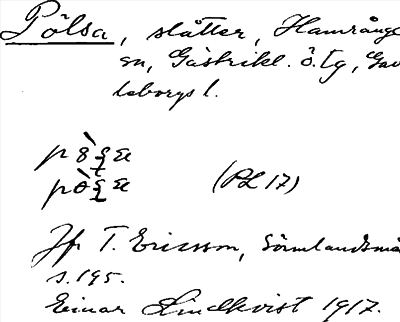 Pölsa, slåtter, Hamrånge
sn, Gästrikl. ö. tg, Gäv
leborgs l.
(PL 17)
Jfr T. Ericsson, Sörmlandsmå
s. 195.
Einar Lindkvist 1917.